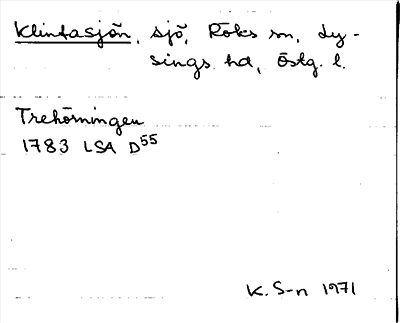 Klintasjön, sjö, Röks sn, Ly-
sings hd, Östg. l.
Trehörningen
1783 LSA D55
K. S-n 1971